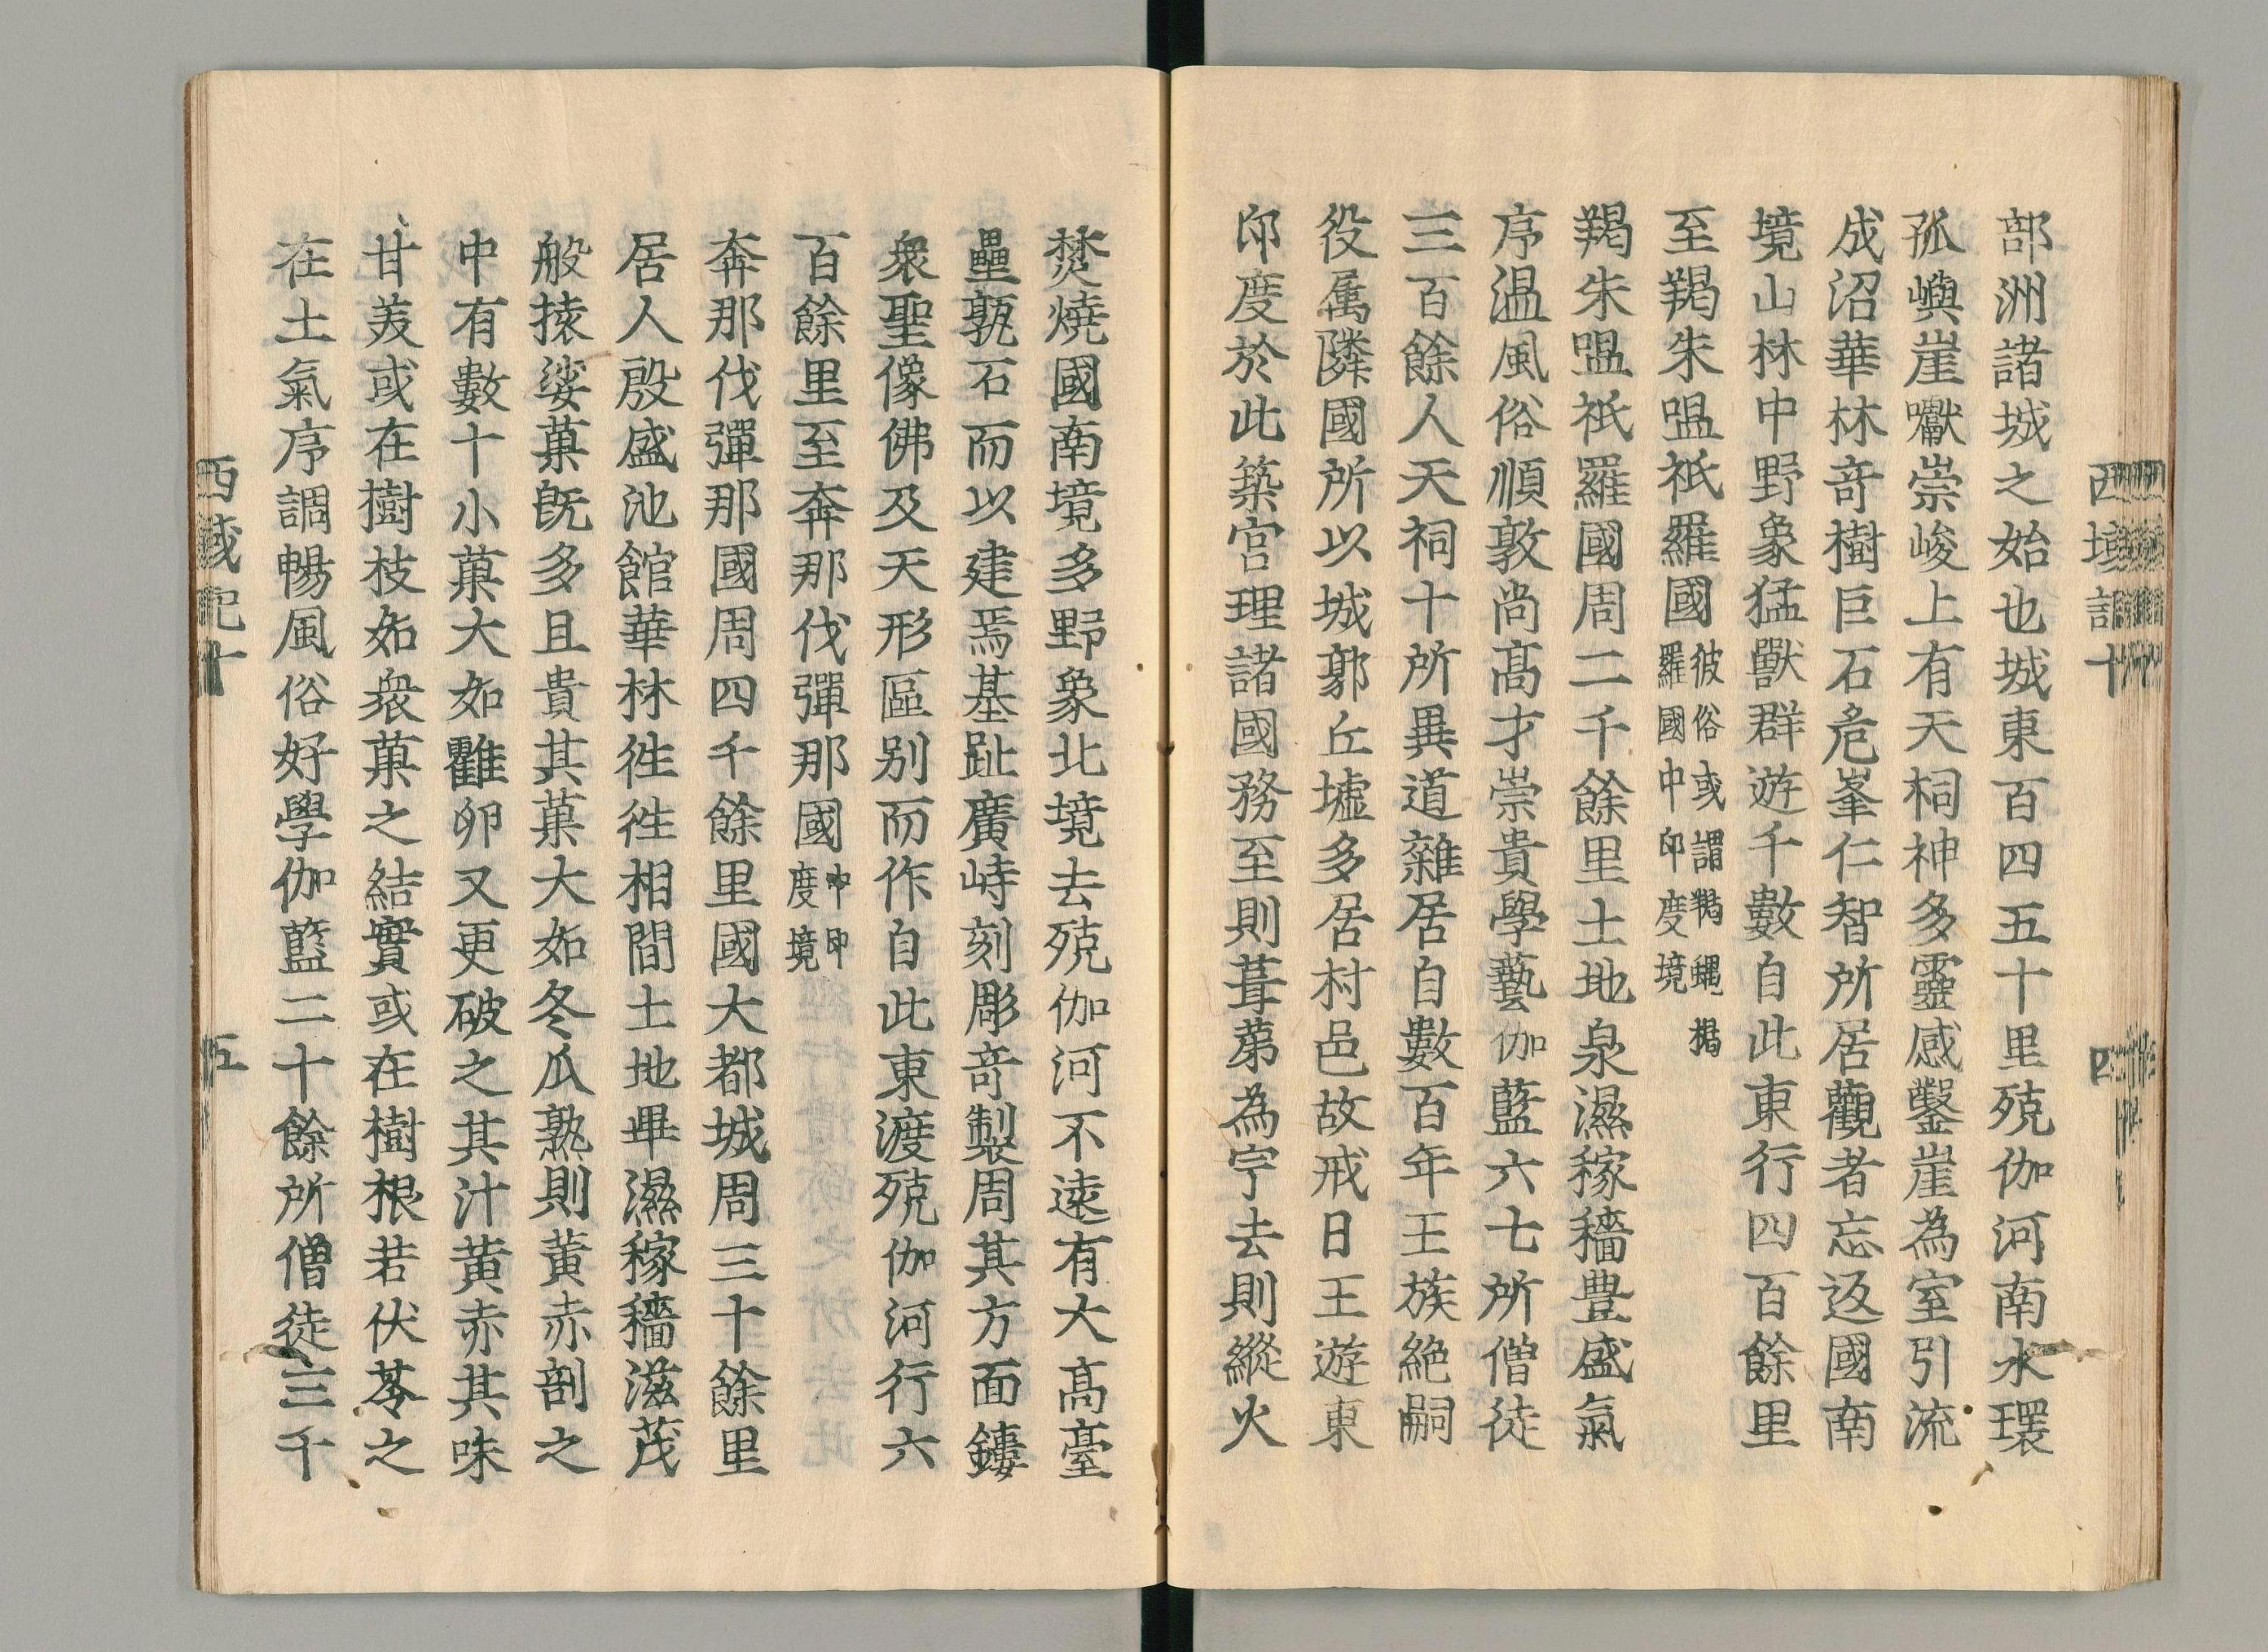 部洲諸城之始也城東百四五十里殑伽河南水環
孤嶼崖巘崇峻上有天祠神多靈感鑿崖為室引流
成沼華林竒樹巨石危峯仁智所居觀者忘返國南
境山林中野象猛獸群遊千數自此東行四百餘里
至羯朱嗢祇羅國彼俗或謂羯蠅揭羅國中印度境
羯朱嗢祇羅國周二千餘里土地泉濕稼穡豊盛氣
序温風俗順敦尚髙才崇貴學藝伽藍六七所僧徒
三百餘人天祠十所異道雜居自數百年王族絶嗣
役属隣國所以城郭丘墟多居村邑故戒日王遊東
印度於此築宫理諸國務至則葺茅為宇去則縱火
焚燒國南境多野象北境去殑伽河不遠有大髙臺
壘甎石而以建焉基趾廣峙刻彫竒製周其方面鏤
衆聖像佛及天形區别而作自此東渡殑伽河行六
百餘里至奔那伐彈那國中印度境
奔那伐彈那國周四千餘里國大都城周三十餘里
居人殷盛池館華林徃徃相間土地畢濕稼穡滋茂
般㯋娑菓既多且貴其菓大如冬瓜熟則黄赤剖之
中有數十小菓大如鸛卵又更破之其汁黄赤其味
甘美或在樹枝如衆菓之結實或在樹根若伏苓之
在土氣序調暢風俗好學伽藍二十餘所僧徒三千
西域記十
五